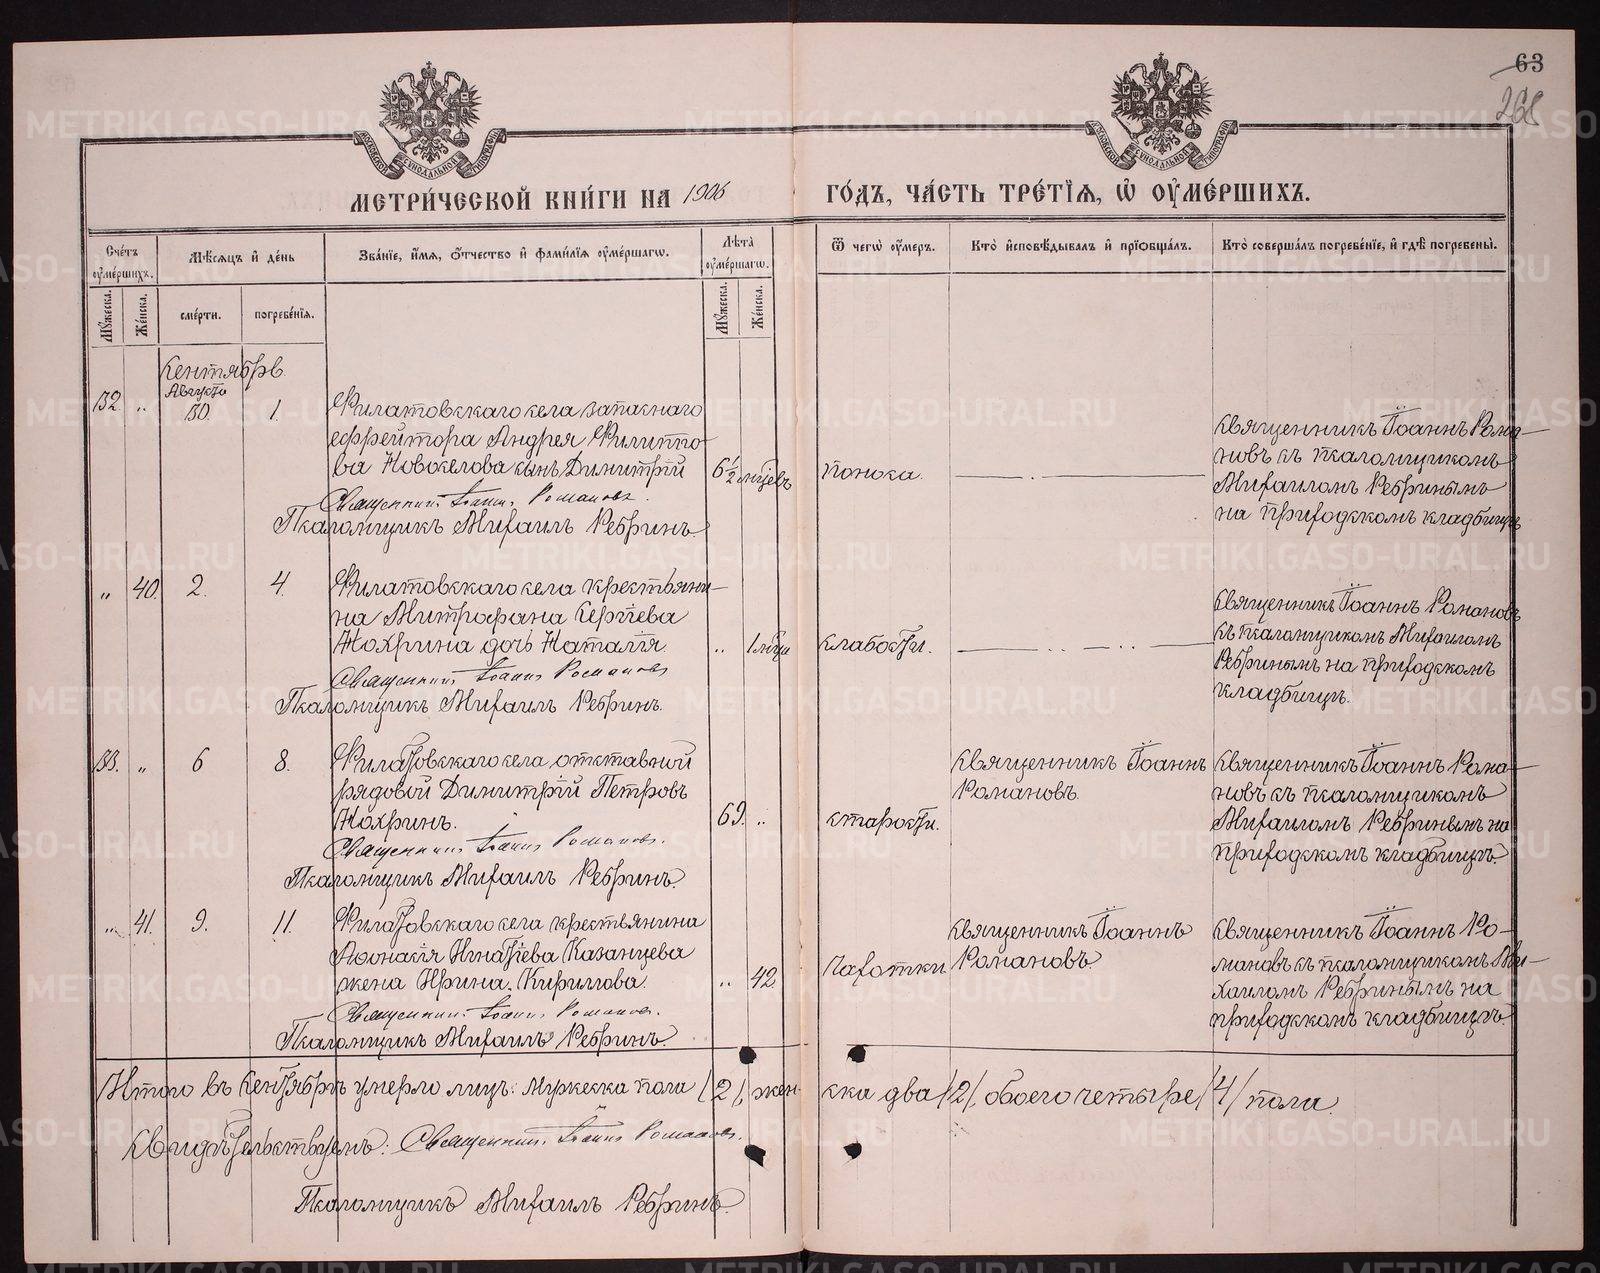 63
268
МЕТРИ́ЧЕСКОЙ КНИ́ГИ НА 1906 ГО́ДЪ, ЧА́СТЬ ТРЕ́ТІЯ, Ѽ ОУ҆МЕ́РШИХЪ.
Сче́тъ оу҆ме́ршихъ.
Мꙋ́жеска.
Же́нска.
Мѣ́сяцъ и҆ де́нь
сме́рти.
погребе́нїя.
Зва́нїе, и҆́мя, ѻ҆́тчество и҆ фами́лїя оу҆ме́ршагѡ.
Лѣ́та оу҆ме́ршагѡ.
Мꙋ́жеска.
Же́нска.
Ѿ чегѡ̀ оу҆́меръ.
Кто̀ и҆сповѣ́дывалъ и҆ прїѡбща́лъ.
Кто̀ соверша́лъ погребе́нїе, и҆ гдѣ̀ погребены̀.
Сентябрь.
Августа
32 „ 30. 1.
Филатовскаго села запаснаго
ефрейтора Андрея Филиппо-
ва Новоселова сынъ Димитрій
Священникъ Іоаннъ Романовъ.
Псаломщикъ Михаилъ Ребринъ.
6½ мѣсѣцъ
поноса.
Священникъ Іоаннъ Рома-
новъ съ псаломщикомъ
Михаиломъ Ребринымъ
на приходскомъ кладбищѣ
„ 40. 2. 4.
Филатовскаго села крестьяни-
на Митрофана Сергіева
Жохрина дочь Наталія.
Священникъ Іоаннъ Романовъ
Псаломщикъ Михаилъ Ребринъ.
„ 1 мѣсѣц
слабости.
Священникъ Іоаннъ Романовъ
съ псаломщикомъ Михаиломъ
Ребринымъ на приходскомъ
кладбищѣ.
33. „ 6 8.
Филатовскаго села, отставной
рядовой Димитрій Петровъ
Жохринъ.
Священникъ Іоаннъ Романовъ.
Псаломщикъ Михаилъ Ребринъ.
69. „
старости.
Священникъ Іоаннъ
Романовъ.
Священникъ Іоаннъ Рома-
новъ съ псаломщикомъ
Михаиломъ Ребринымъ на
приходскомъ кладбищѣ.
„ 41. 9. 11.
Филатовскаго села крестьянина
Аѳонасія Игнатіева Казанцева
жена Ирина Кириллова.
Священникъ Іоаннъ Романовъ.
Псаломщикъ Михаилъ Ребринъ.
„ 42
чахотки
Священникъ Іоаннъ
Романовъ.
Священникъ Іоаннъ Ро-
мановъ съ псаломщикомъ Ми-
хаиломъ Ребринымъ на
приходскомъ кладбищѣ.
Итого въ Сентябрѣ умерло лицъ: мужеска пола /2/, жен-
ска два /2/, обоего четыре /4/ пола.
Свидѣтельствуемъ: Священникъ Іоаннъ Романовъ.
Псаломщикъ Михаилъ Ребринъ.
METRIKI.GASO-URAL.RU